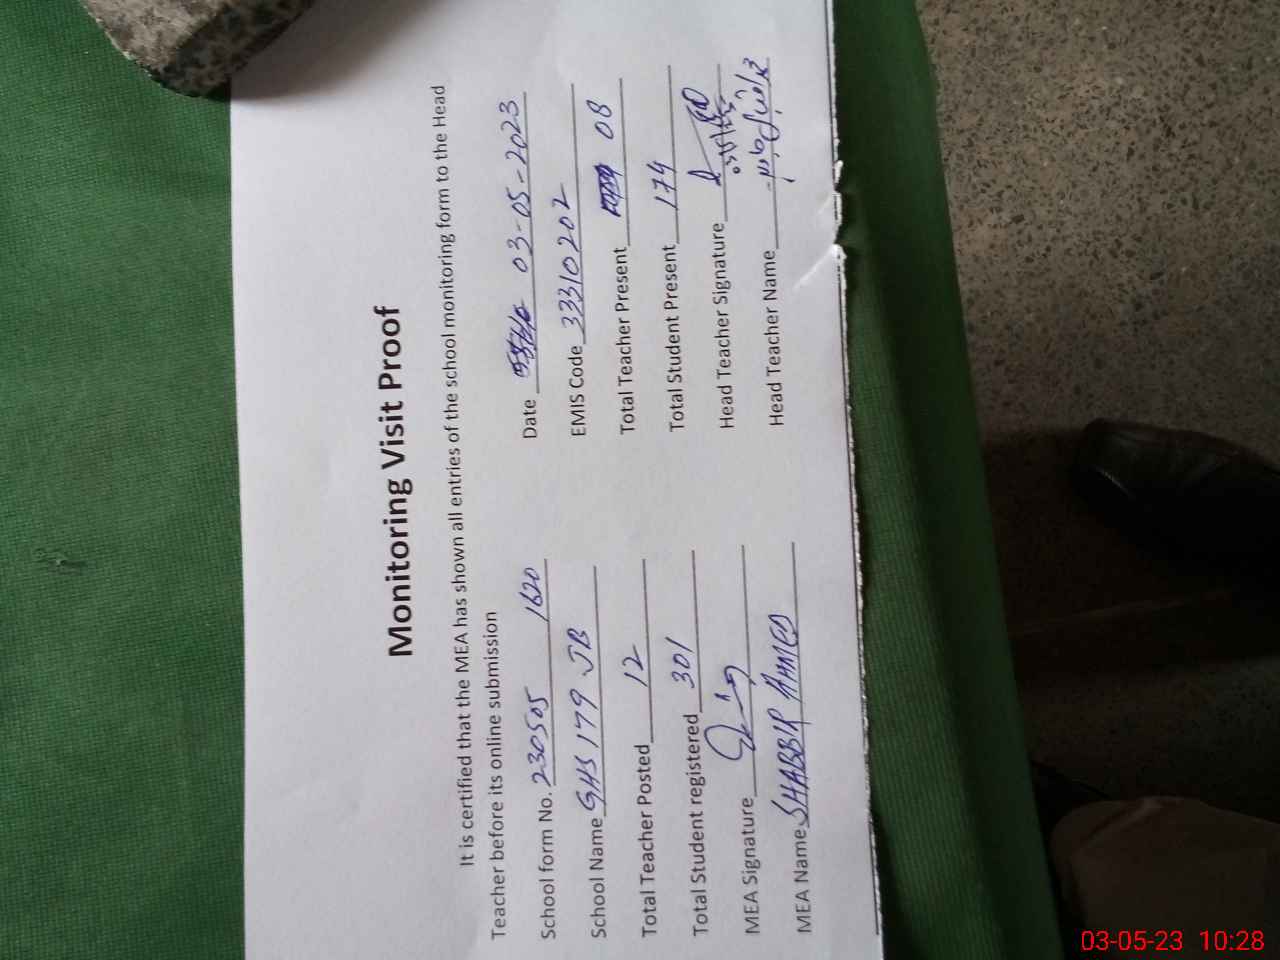 Monitoring Visit Proof
It is certified that the MEA has shown all entries of the school monitoring form to the Head
Teacher before its online submission
School form No. 230505 1620 Date 03-05-2023
School Name GHS 179 JB EMIS Code 33310202
Total Teacher Posted 12 Total Teacher Present 08
Total Student registered 301 Total Student Present 174
MEA Signature Head Teacher Signature
MEA Name SHABBIR AHMED Head Teacher Name
03-05-23 10:28